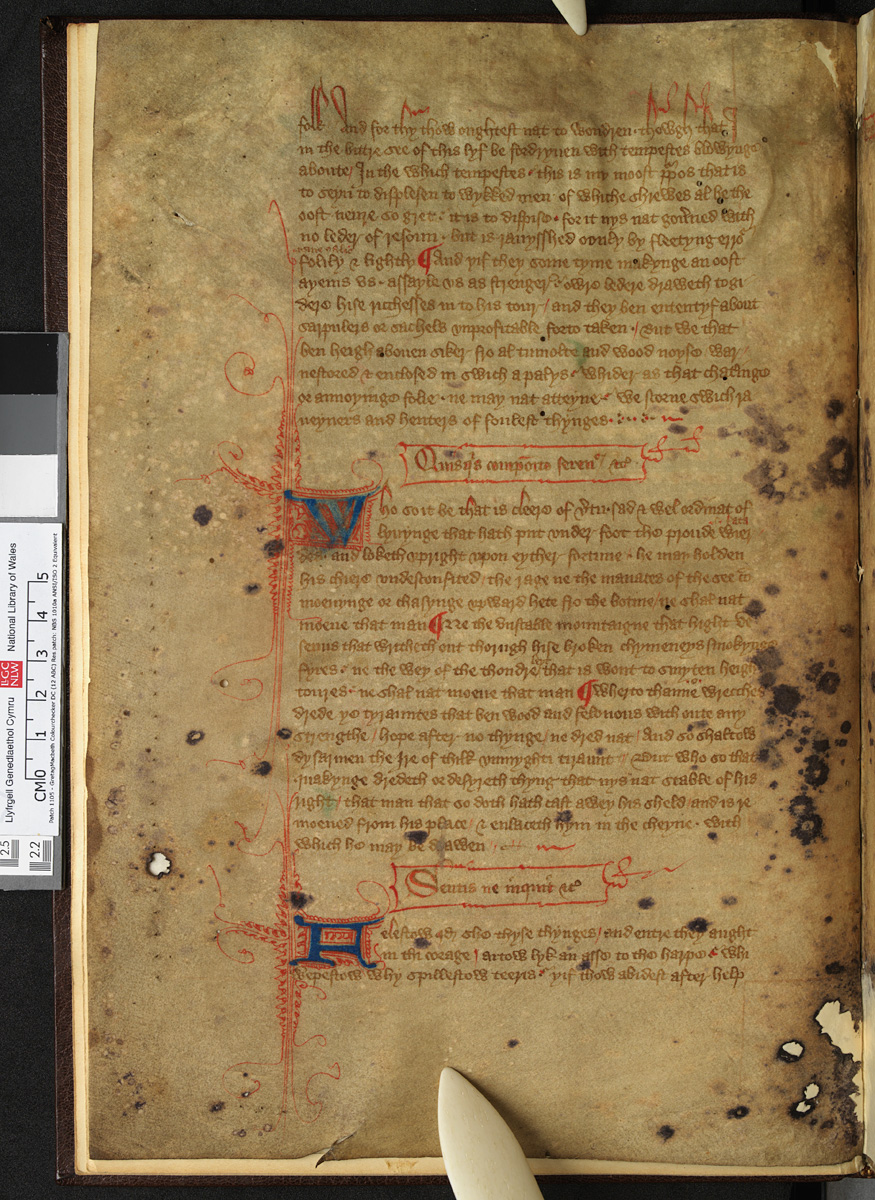 folk And for thy thow oughtest nat to wondren · thowgh that I
in the bittre see of this lyf be fordryuen with tempestes blowynge
aboute / In the which tempestes · this is my moost ꝑpos that is
to seyn to displesen to wykked men · of whiche shrewes al be the
oost neuer so gret · it is to dispise · for it nys nat gouͥned with
no leder of resoun · but is rauysshed oonly by fleetyng erroͬ
folily & lightly ¶ And yif they som tyme makynge an oost
ayenis vs · assayle vs as strenger / owre ledere draweth togi
dere hise richesses in to his tour / and they ben ententyf about
sarpulers or sachels vnprofitable forto taken · / But we that
ben heigh abouen siker fro al tumolte and wood noyse · war
nestored & enclosed in swich a palys · whider as that chateringe
or annoyinge folie · ne may nat atteyne · we scorne swich ra
ueyners and henters of fouleste thynges ·
Quisqͥs compoito seren⁹ / &c
Who so it be that is cleere of v̾tu · sad & wel ordinat of
lyuynge that hath put vnder foot the proude wier
des and loketh vpright vpon eyther fortune · he may holden
his chiere vndesconfited / the rage ne the manaces of the see to
moeuynge or chasynge vpward hete fro the botme / ne shal nat
moeue that man ¶ Ne the vnstable mountaigne that hight ve
seuus that writheth out thorugh hise broken chymeneys smokynge
fyres · ne the wey of the thondre that is wont to smyten heigh
toures · ne shal nat moeue that man ¶ Wherto thanne o wrecches
drede ye tyrauntes that ben wood and felonous with oute any
strengthe / hope after no thynge / ne dred nat / And so shaltow
dysarmen the Ire of thilk vnmyghti tiraunt // But who so that
quakynge dredeth or desyreth thyng that nys nat stable of his
right / that man that so doth hath cast awey his sheld and is re
moeued from his place / & enlaceth hym in the cheyne · with
which he may be drawen
Sentis ne inquit &c
Felestow qd she thyse thynges / and entre they aught
in thi corage / artow lyk an asse to the harpe · whi
wepestow why spillestow teeris · yif thow abidest after help
Llyfrgell Genedlaethol Cymru
LLGC
NLW
National Library of Wales
CM 0 1 2 3 4 5
2.5
2.2